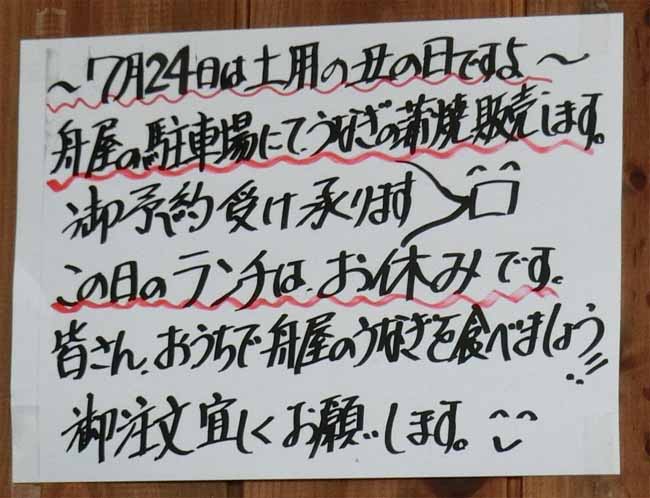 ～7月24日は土用の丑の日ですよ～
舟屋の駐車場にて、うなぎの蒲焼販売します。
御予約受け承ります
この日のランチは、お休みです。
皆さん、おうちで舟屋のうなぎを食べましょう!!
御注文宜しくお願いします。